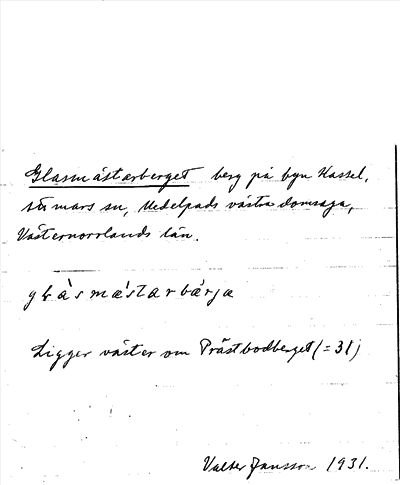 Glasmästarberget berg på byn Kassel,
sn, Medelpads västra domsaga,
Västernorrlands län.
Ligger väster om Prästbodberget (= 31)
Valter Jansson 1931.